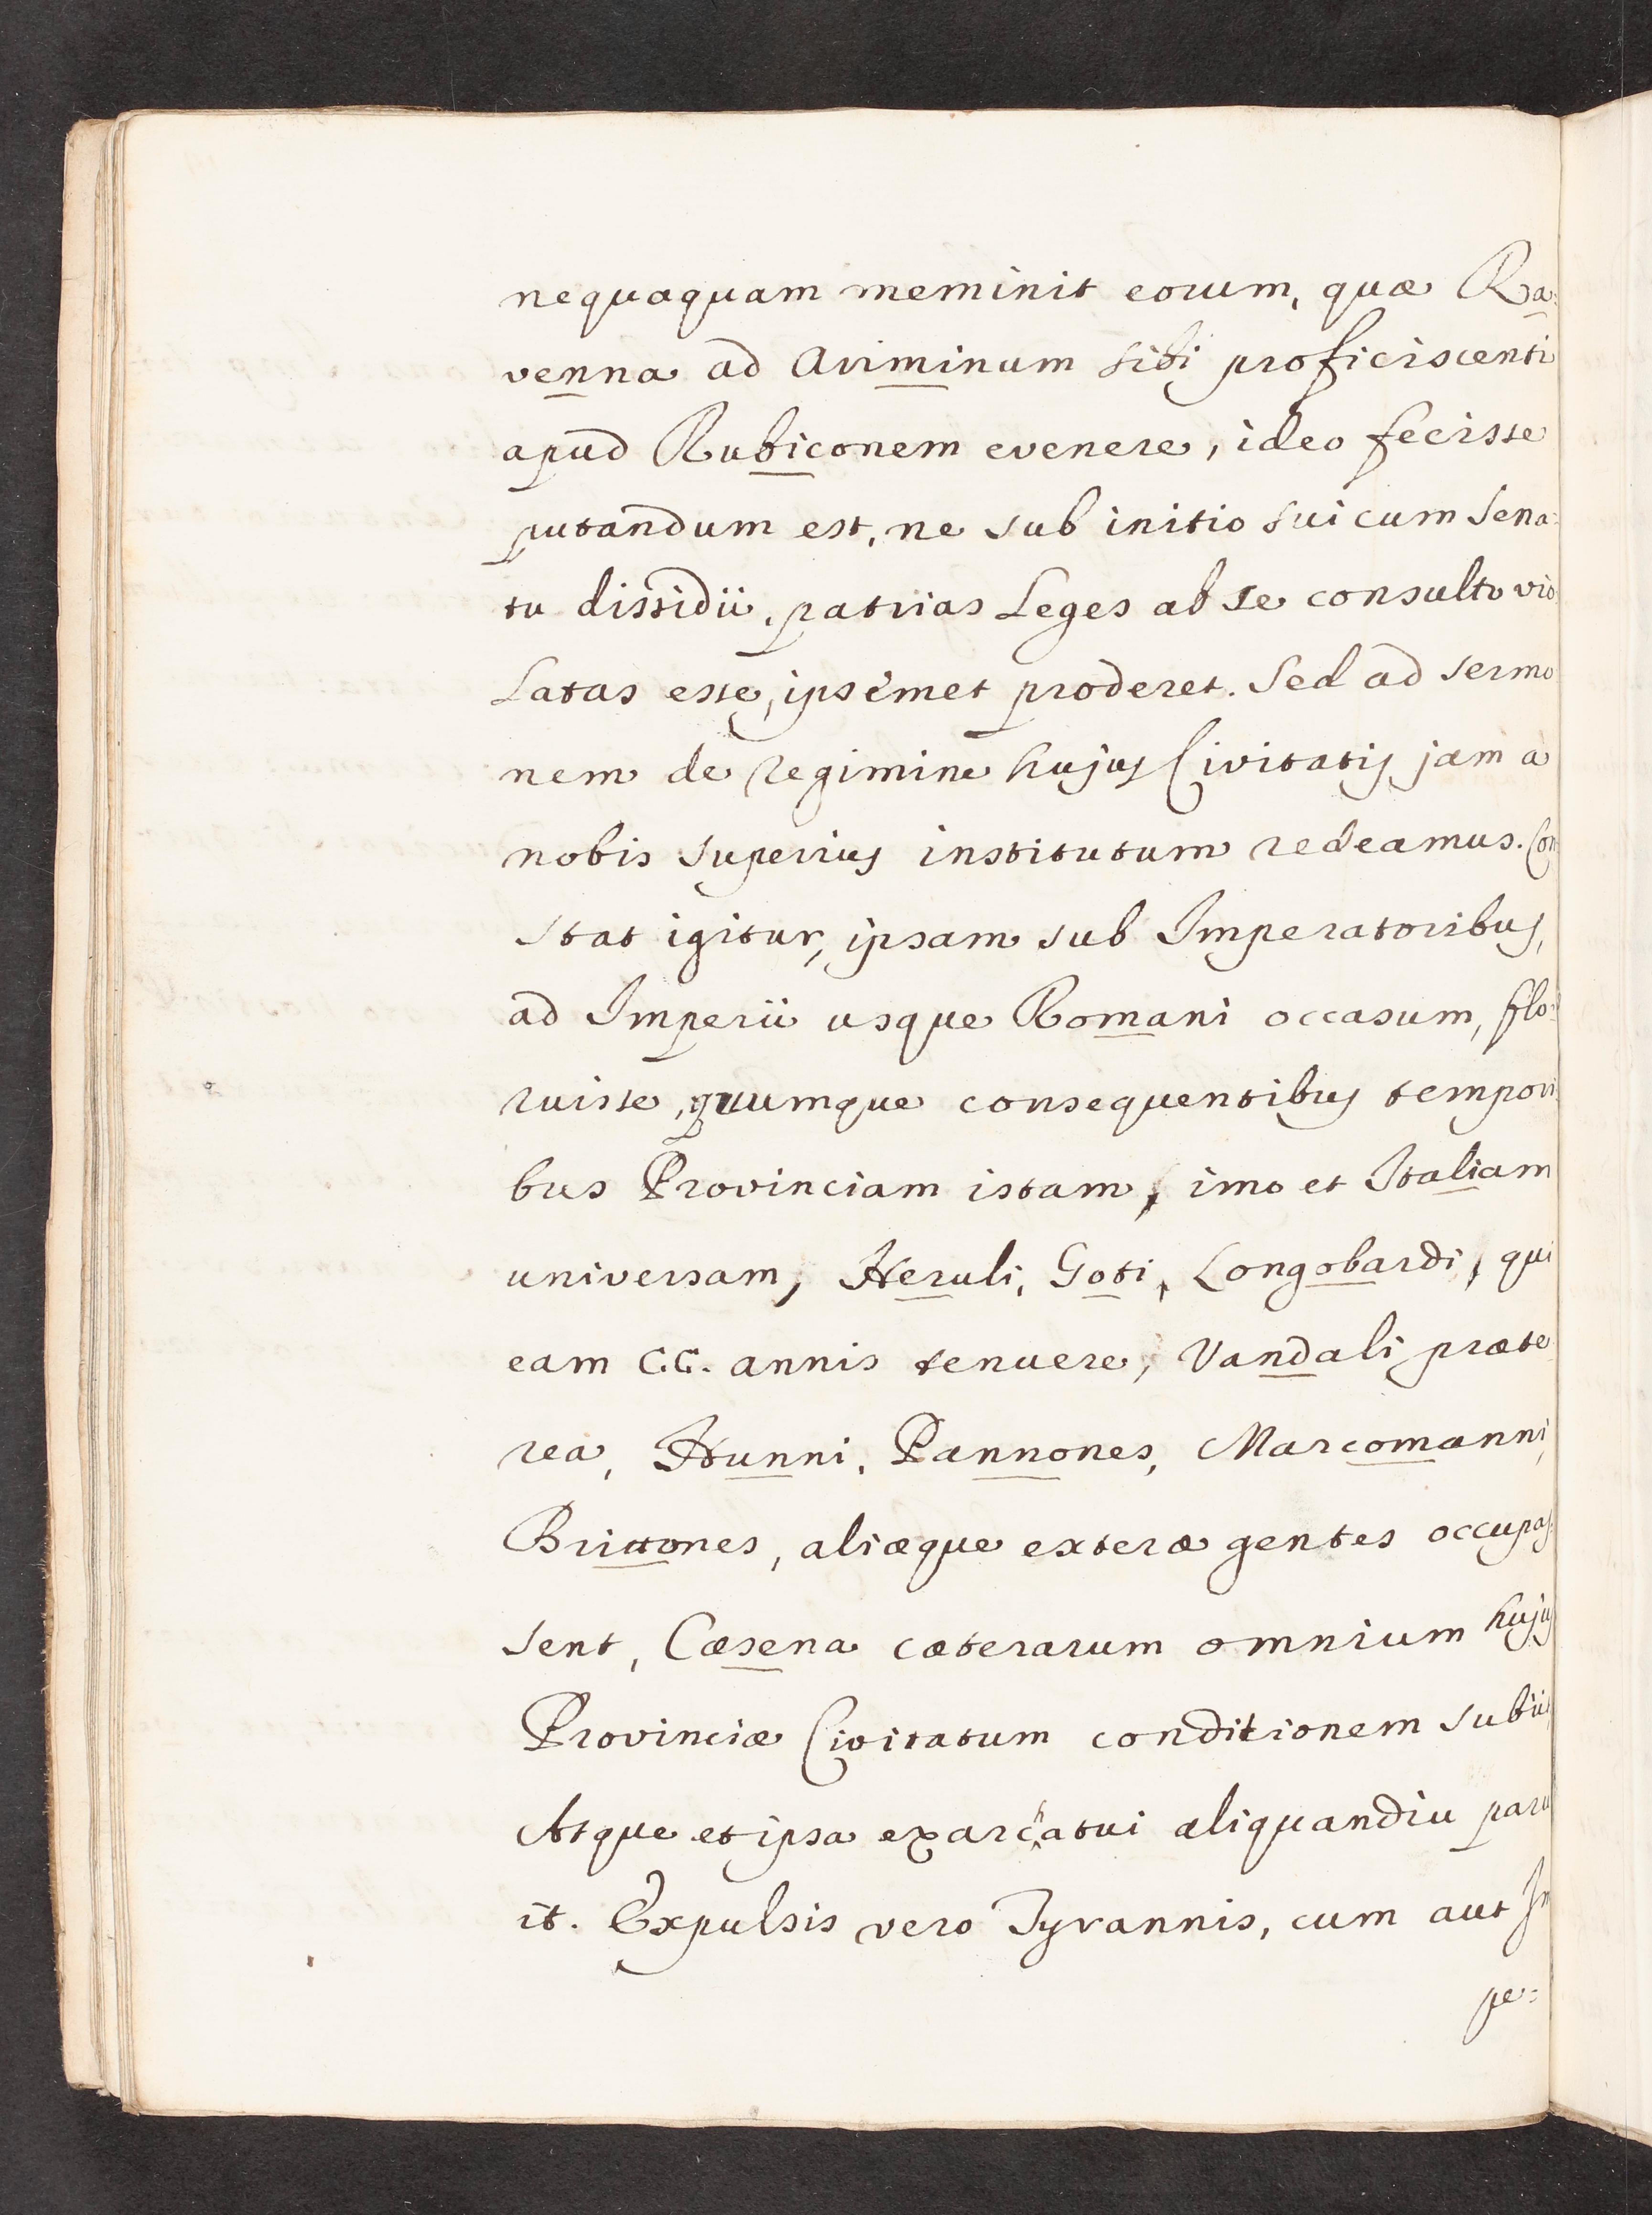 nequaquam meminit eorum, quæ Ra:
venna ad Ariminum sibi proficiscenti
apud Rubiconem evenere, ideo fecisse
putandum est, ne sub initio sui cum Sena:
tu dissidii, patrias Leges ab se consulto vio
Latas esse, ipsemet proderet. Sed ad sermo
nem de regimine hujus Civitatis jam a
nobis superius institutum redeamus. Con
stat igitur, ipsam sub Imperatoribus,
ad Imperii usque Romani occasum, flo:
ruisse, quumque consequentibus tempori
bus Provinciam istam, imo et Italiam
universam, Heruli, Goti, Longobardi, qui
eam CC. annis tenuere, Vandali præte
rea, Hunni, Pannones, Marcomanni,
Brittones, aliæque exteræ gentes occupas:
sent, Cæsena cæterarum omnium hujus
Provinciæ Civitatum conditionem subiit
Atque et ipsa exarchatui aliquandiu paru
it. Expulsis vero Tyrannis, cum aut Im
pe: